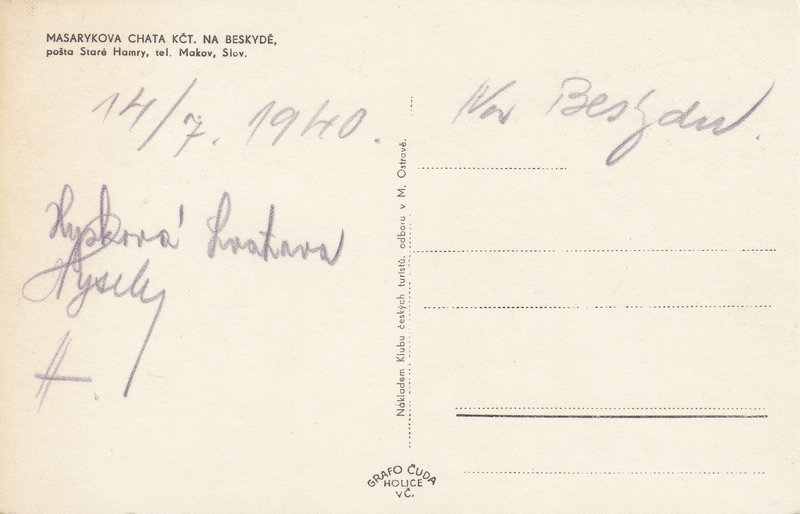 MASARYKOVA CHATA KČT. NA BESKYDĚ,
pošta Staré Hamry, tel. Makov, Slov.
14/7. 1940.
Na Beskydu.
Nákladem Klubu českých turistů, odboru v M. Ostravě.
H.
GRAFO ČUDA
HOLICE
VČ.